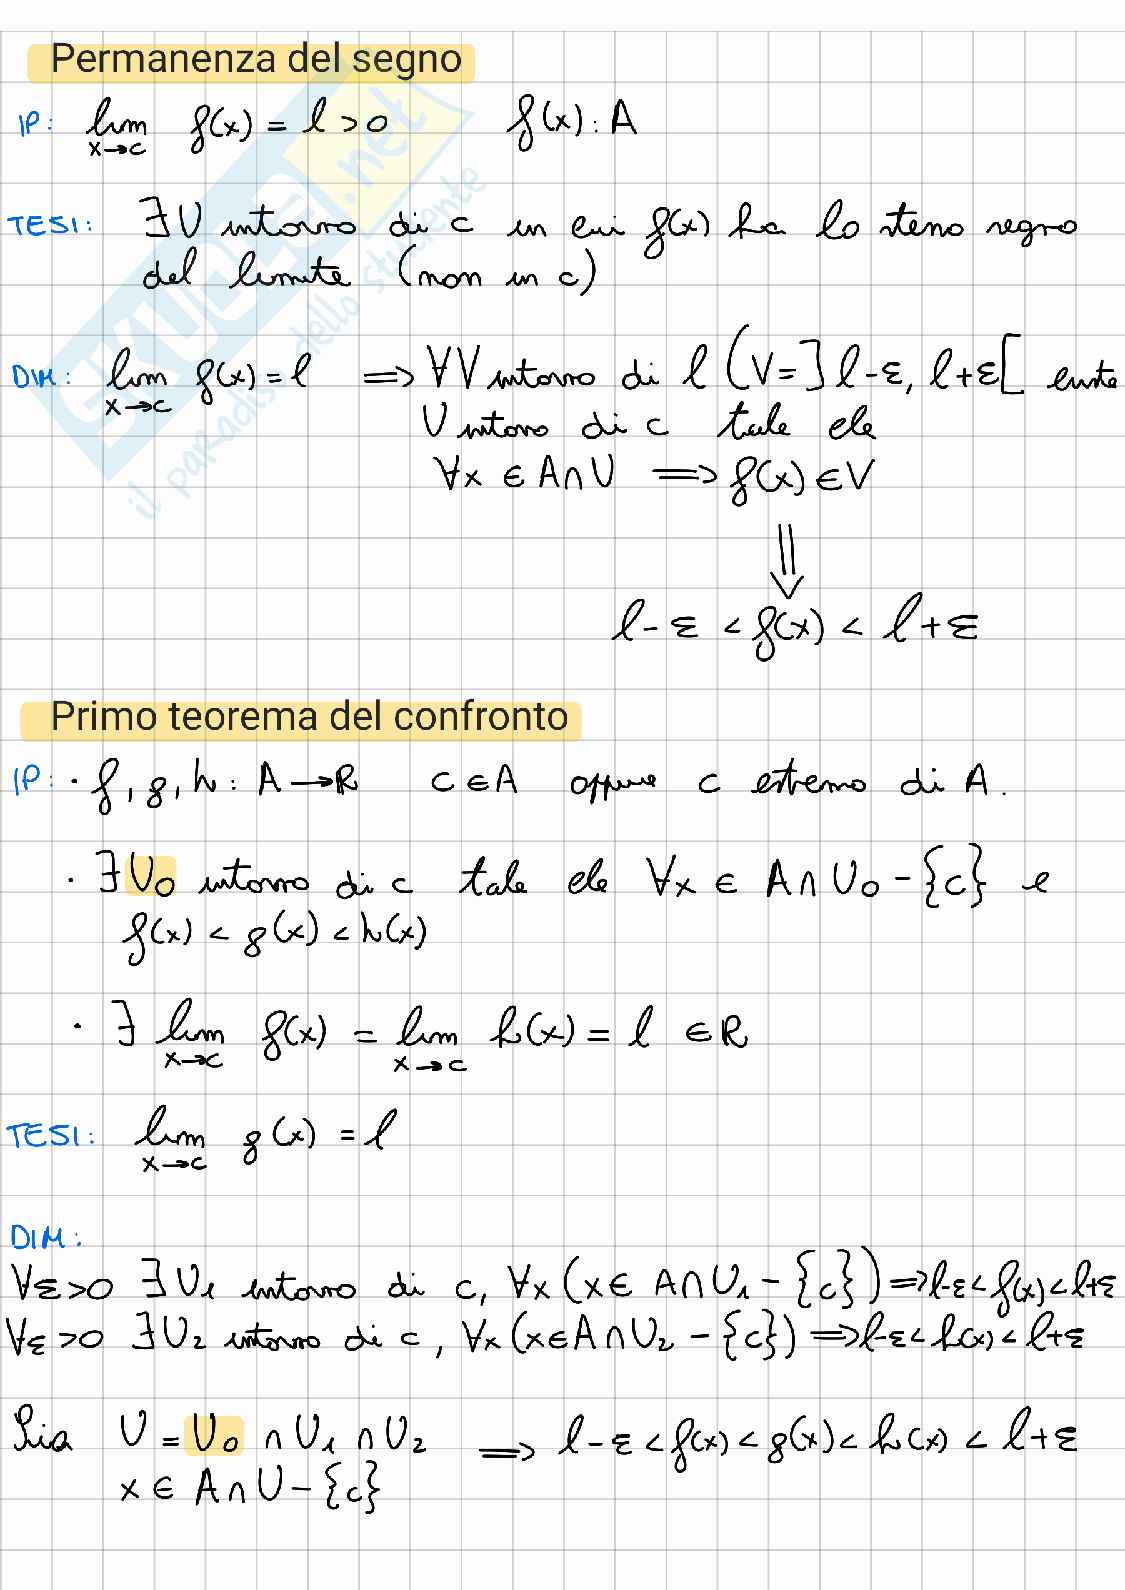 Permanenza del segno
IP: lim x→c f(x) = l > 0 f(x): A
TESI: ∃ U intorno di c in cui f(x) ha lo stesso segno
del limite (non in c)
DIM: lim x→c f(x) = l ⟹ ∀V intorno di l (V = ]l-ε, l+ε[ esiste
U intorno di c tale che
∀x ∈ A∩U ⟹ f(x) ∈ V
⇓
l-ε < f(x) < l+ε
Primo teorema del confronto
IP: · f, g, h : A → R c ∈ A oppure c estremo di A.
· ∃ U₀ intorno di c tale che ∀x ∈ A∩U₀ - {c} e
f(x) < g(x) < h(x)
· ∃ lim x→c f(x) = lim x→c h(x) = l ∈ R
TESI: lim x→c g(x) = l
DIM:
∀ε>0 ∃ U₁ intorno di c, ∀x (x ∈ A∩U₁ - {c}) ⟹ l-ε < f(x) < l+ε
∀ε>0 ∃ U₂ intorno di c, ∀x (x ∈ A∩U₂ - {c}) ⟹ l-ε < h(x) < l+ε
Sia U = U₀ ∩ U₁ ∩ U₂ ⟹ l-ε < f(x) < g(x) < h(x) < l+ε
x ∈ A∩U - {c}
SKUOLA.net
il paradiso dello studente